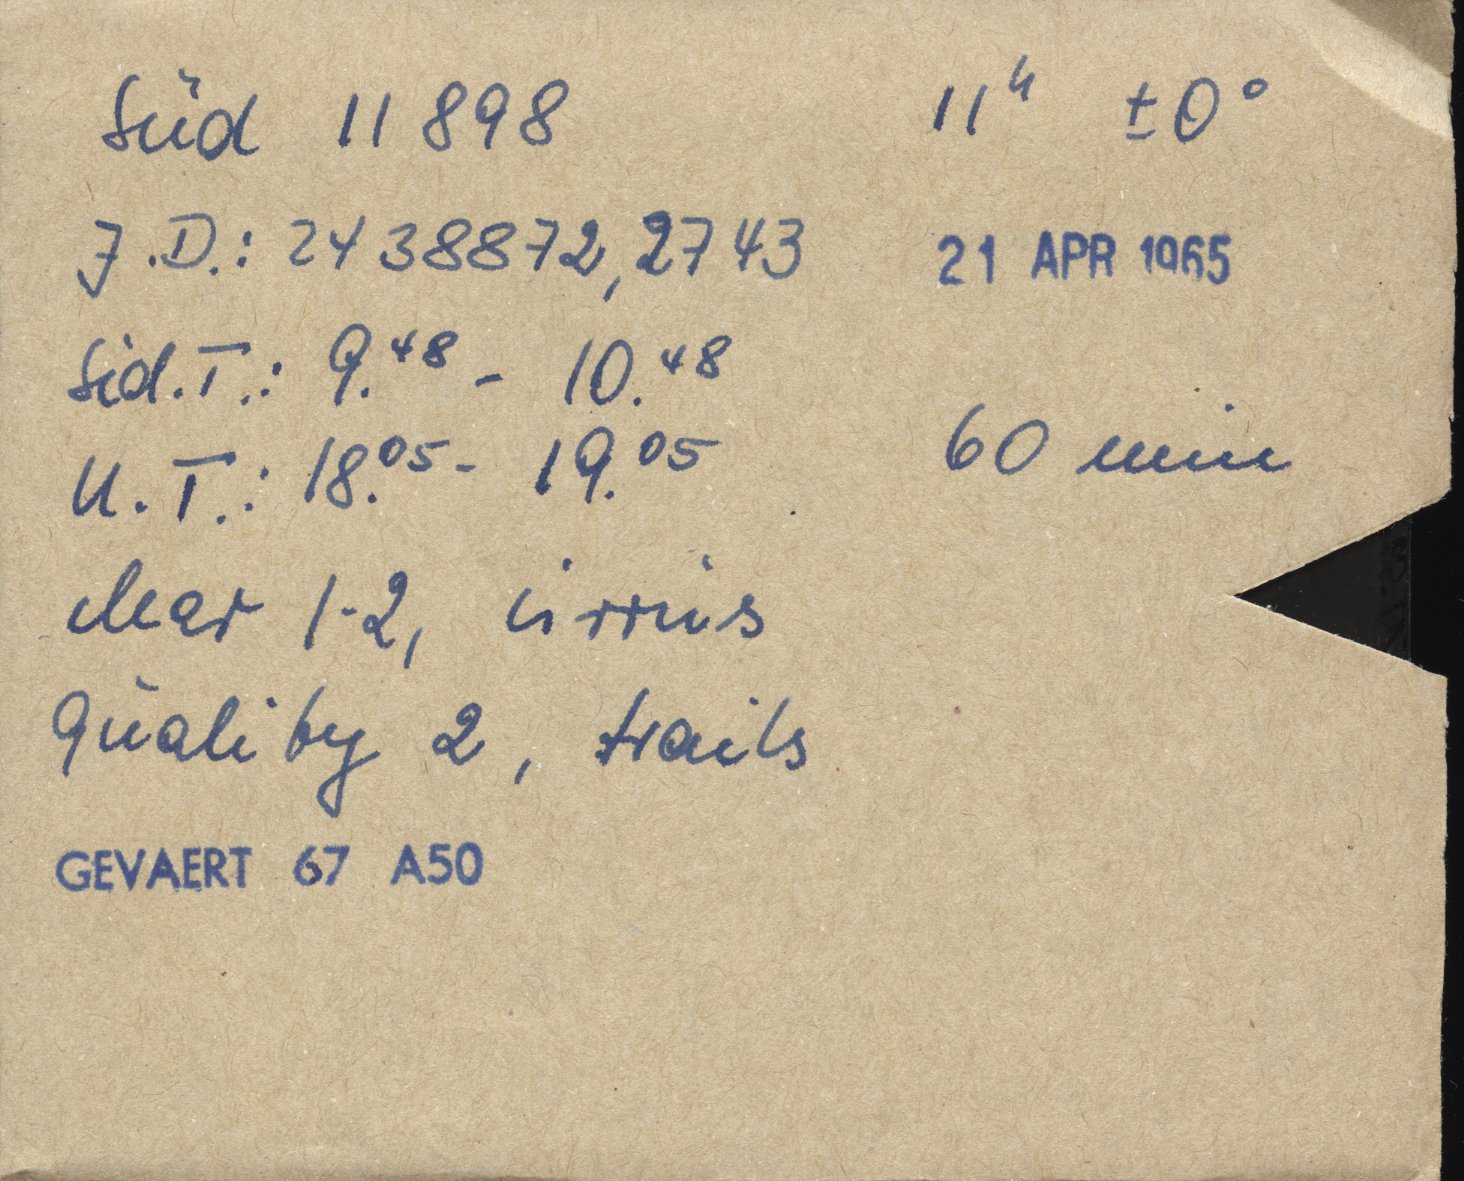 Süd 11898 11ʰ ±0°
J.D.: 2438872,2743 21 APR 1965
Sid.T.: 9.⁴⁸ - 10.⁴⁸
U.T.: 18.⁰⁵ - 19.⁰⁵ 60 min
clear 1-2, cirrus
Quality 2, trails
GEVAERT 67 A50